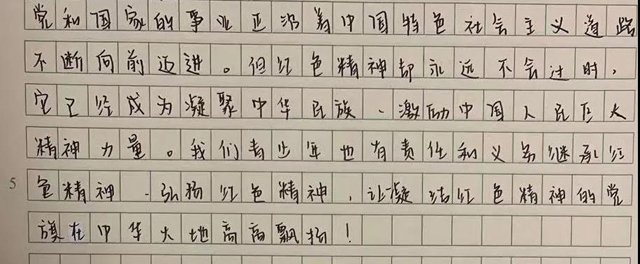 党和国家的事业正沿着中国特色社会主义道路
不断向前迈进。但红色精神却永远不会过时，
它已经成为凝聚中华民族、激励中国人民巨大
精神力量。我们青少年也有责任和义务继承红
5
色精神、弘扬红色精神，让凝结红色精神的党
旗在中华大地高高飘扬！